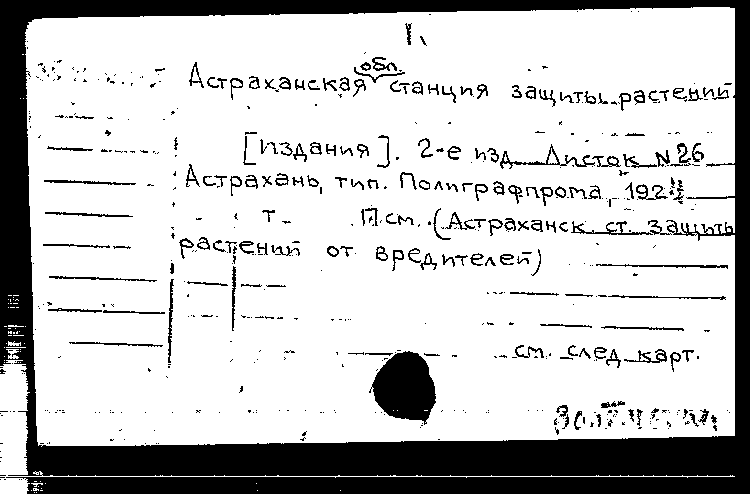 1.
обл.
Астраханская станция защиты растений.
[Издания]. 2-е изд. Листок N 26
Астрахань, тип. Полиграфпрома, 192
т. П см. (Астраханск. ст. защиты
растений от вредителей)
см. след. карт.